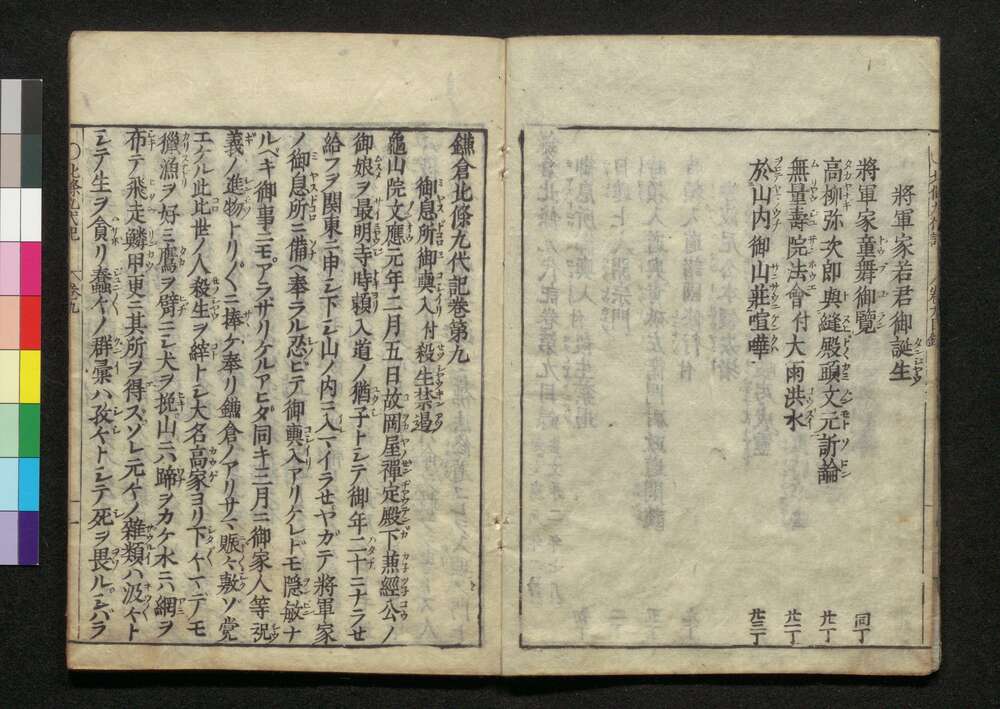 將軍家若君御誕生
將軍家童舞御覽 同丁
高柳弥次郎與縫殿頭文元訴論 廿丁
無量壽院法會付大雨洪水 廿一丁
於山内御山莊喧嘩 廿三丁
鎌倉北條九代記卷第九
御息所御輿入付殺生禁遏
龜山院文應元年二月五日故岡屋禪定殿下兼經公ノ
御娘ヲ最明寺時頼入道ノ猶子トシテ御年二十ニナラセ
給フヲ関東ニ申シ下シ山ノ内ニ入マイラセヤガテ將軍家
ノ御息所ニ備ヘ奉ラル忍ビテ御輿入アリケレドモ隠敏ナ
ルベキ御事ニモアラザリケルアヒダ同キ三月ニ御家人等祝
義ノ進物トリ〳〵ニ捧ケ奉リ鎌倉ノアリサマ賑々敷ゾ覚
エケル此比世ノ人殺生ヲ縡トシ大名高家ヨリ下々マデモ
獵漁ヲ好ミ鷹ヲ臂ニシ犬ヲ挽山ニハ蹄ヲカケ水ニハ網ヲ
布テ飛走鱗甲更ニ其所ヲ得ズソレ元々ノ雜類ハ汲々ト
シテ生ヲ貪リ蠢々ノ群彙ハ孜々トシテ死ヲ畏ルシハラ
北條九代記 卷九 一